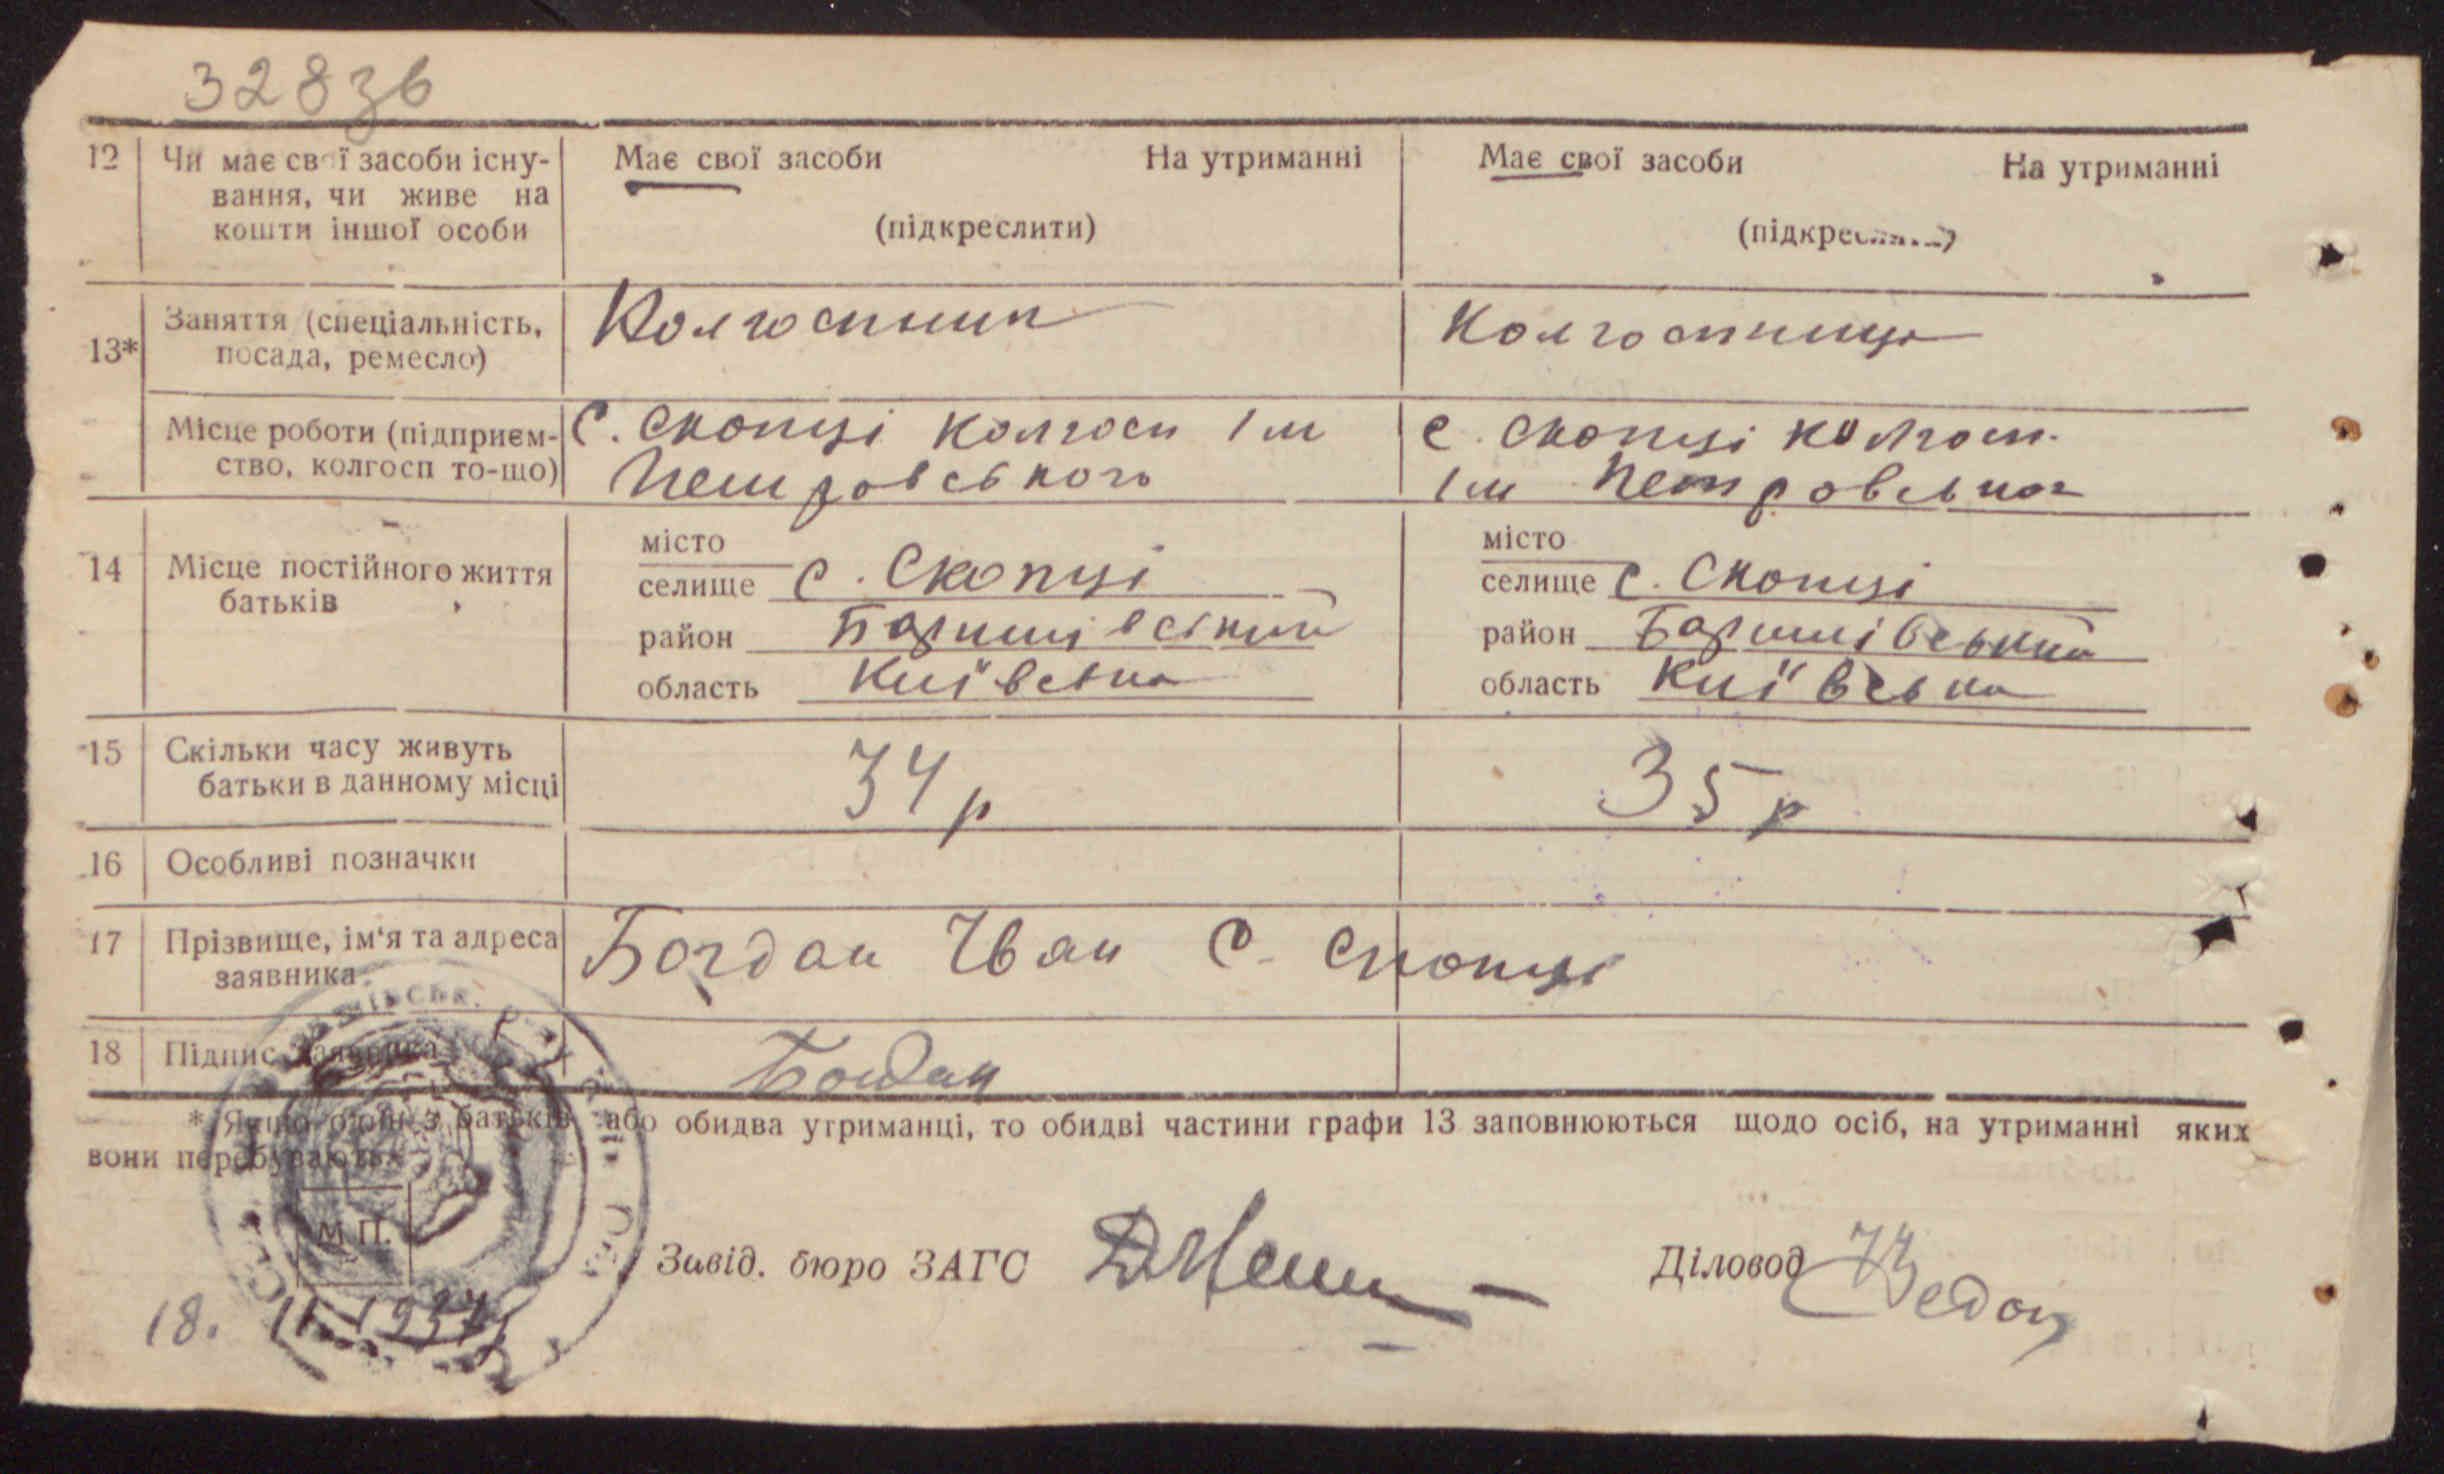 328зв
12 Чи має свої засоби існу- Має свої засоби На утриманні Має свої засоби На утриманні
вання, чи живе на
кошти іншої особи (підкреслити) (підкреслити)
13* Заняття (спеціальність, Колгоспник Колгоспниця
посада, ремесло)
Місце роботи (підприєм- С. Скопці колгосп ім с. Скопці колгосп
ство, колгосп то-що) Петровського ім Петровськог
14 Місце постійного життя місто місто
батьків селище с. Скопці селище с. Скопці
район Баришівський район Баришівський
область Київська область Київська
15 Скільки часу живуть 34 р 35 р
батьки в данному місці
16 Особливі позначки
17 Прізвище, ім'я та адреса Богдан Іван С. Скопці
заявника
18 Підпис заявника Богдан
* Якщо один з батьків або обидва утриманці, то обидві частини графи 13 заповнюються щодо осіб, на утриманні яких
вони перебувають.
М.П.
Завід. бюро ЗАГС Діловод
18. II. 1937